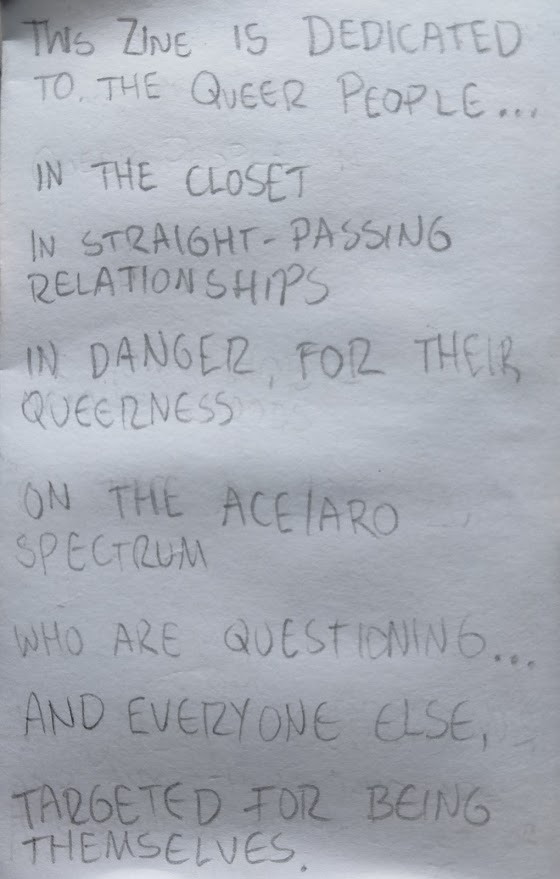 THIS ZINE IS DEDICATED
TO THE QUEER PEOPLE...
IN THE CLOSET
IN STRAIGHT-PASSING
RELATIONSHIPS
IN DANGER, FOR THEIR
QUEERNESS
ON THE ACE/ARO
SPECTRUM
WHO ARE QUESTIONING...
AND EVERYONE ELSE,
TARGETED FOR BEING
THEMSELVES.